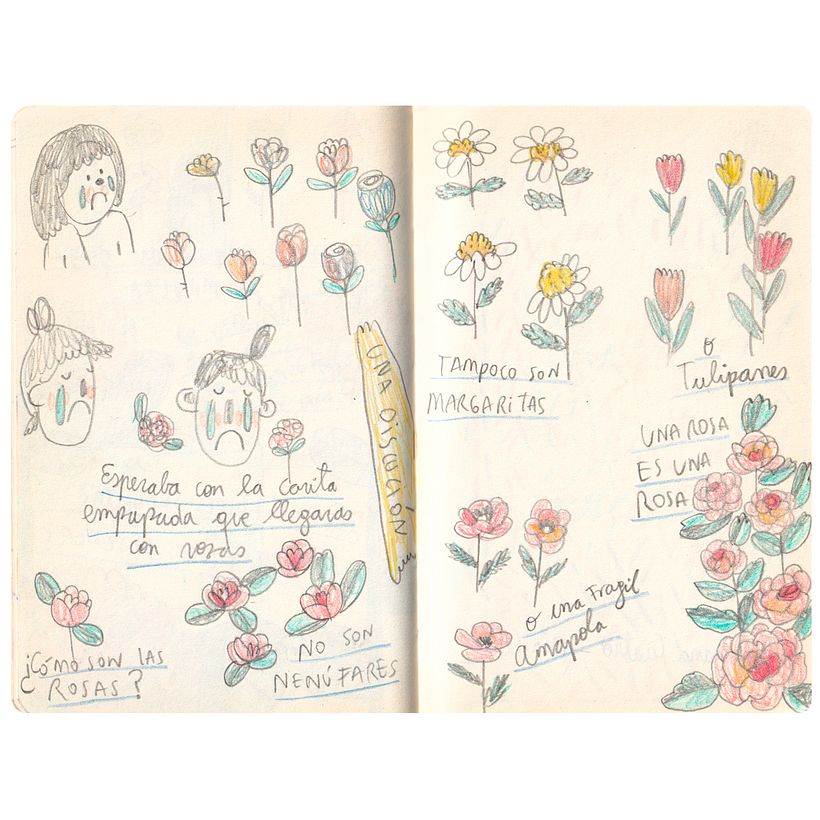 UNA
Esperaba con la carita
empapada que llegaras
con rosas
¿CÓMO SON LAS
ROSAS?
NO SON
NENÚFARES
TAMPOCO SON
MARGARITAS
o
Tulipanes
UNA ROSA
ES UNA
ROSA
o una FRAGIL
amapola